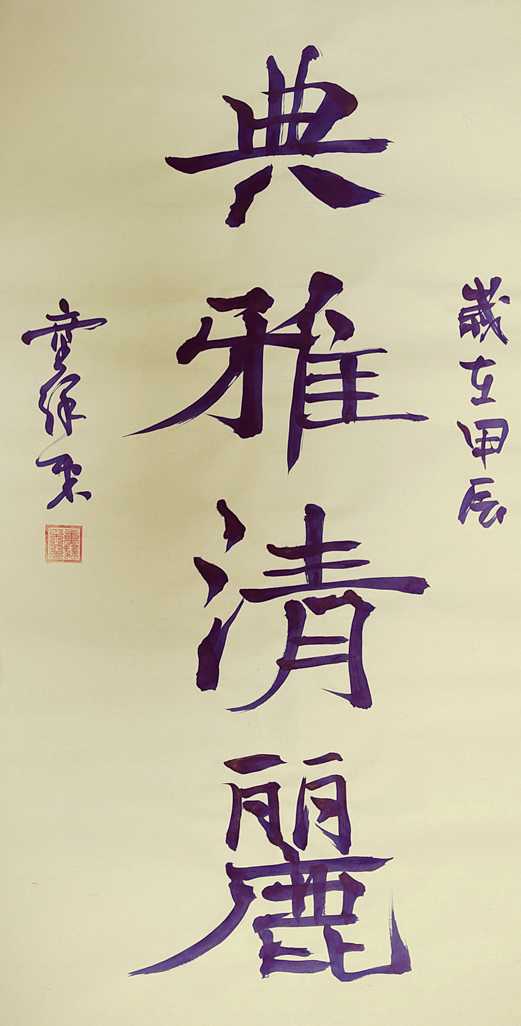 歲在甲辰
典雅清麗